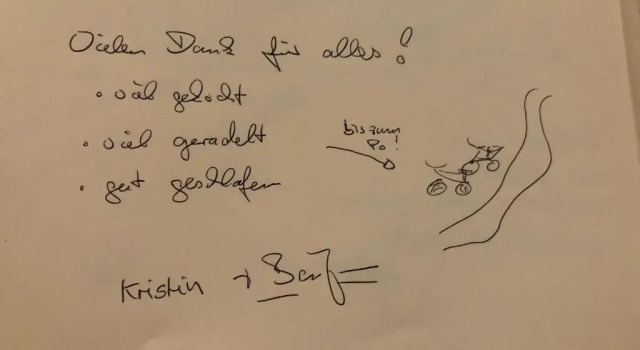 Vielen Dank für alles!
· viel gekocht
· viel geradelt
· gut geschlafen
bis zum
Po!
Kristin +